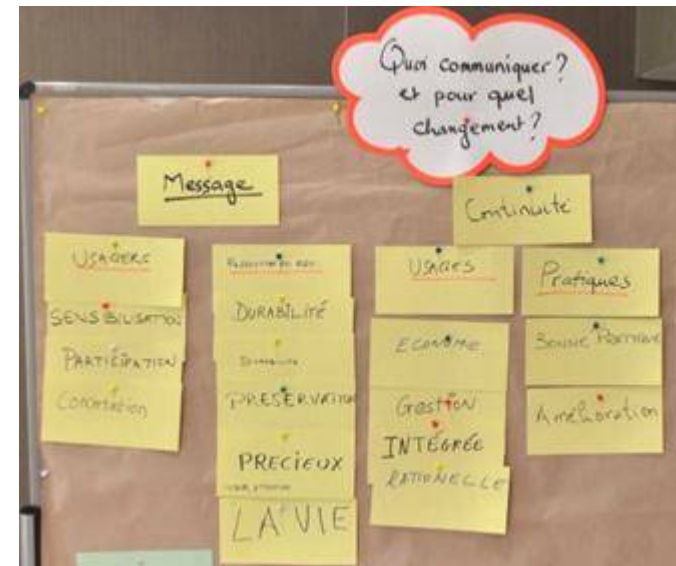 Quoi communiquer ?
et pour quel
changement ?
Message
Continuité
USAGERS
SENSIBILISATION
PARTICIPATION
Concertation
DURABILITÉ
PRESERVATION
PRECIEUX
LA VIE
USAGES
ECONOME
GESTION
INTÉGRÉE
RATIONELLE
Pratiques
BONNE PRATIQUE
Amélioration